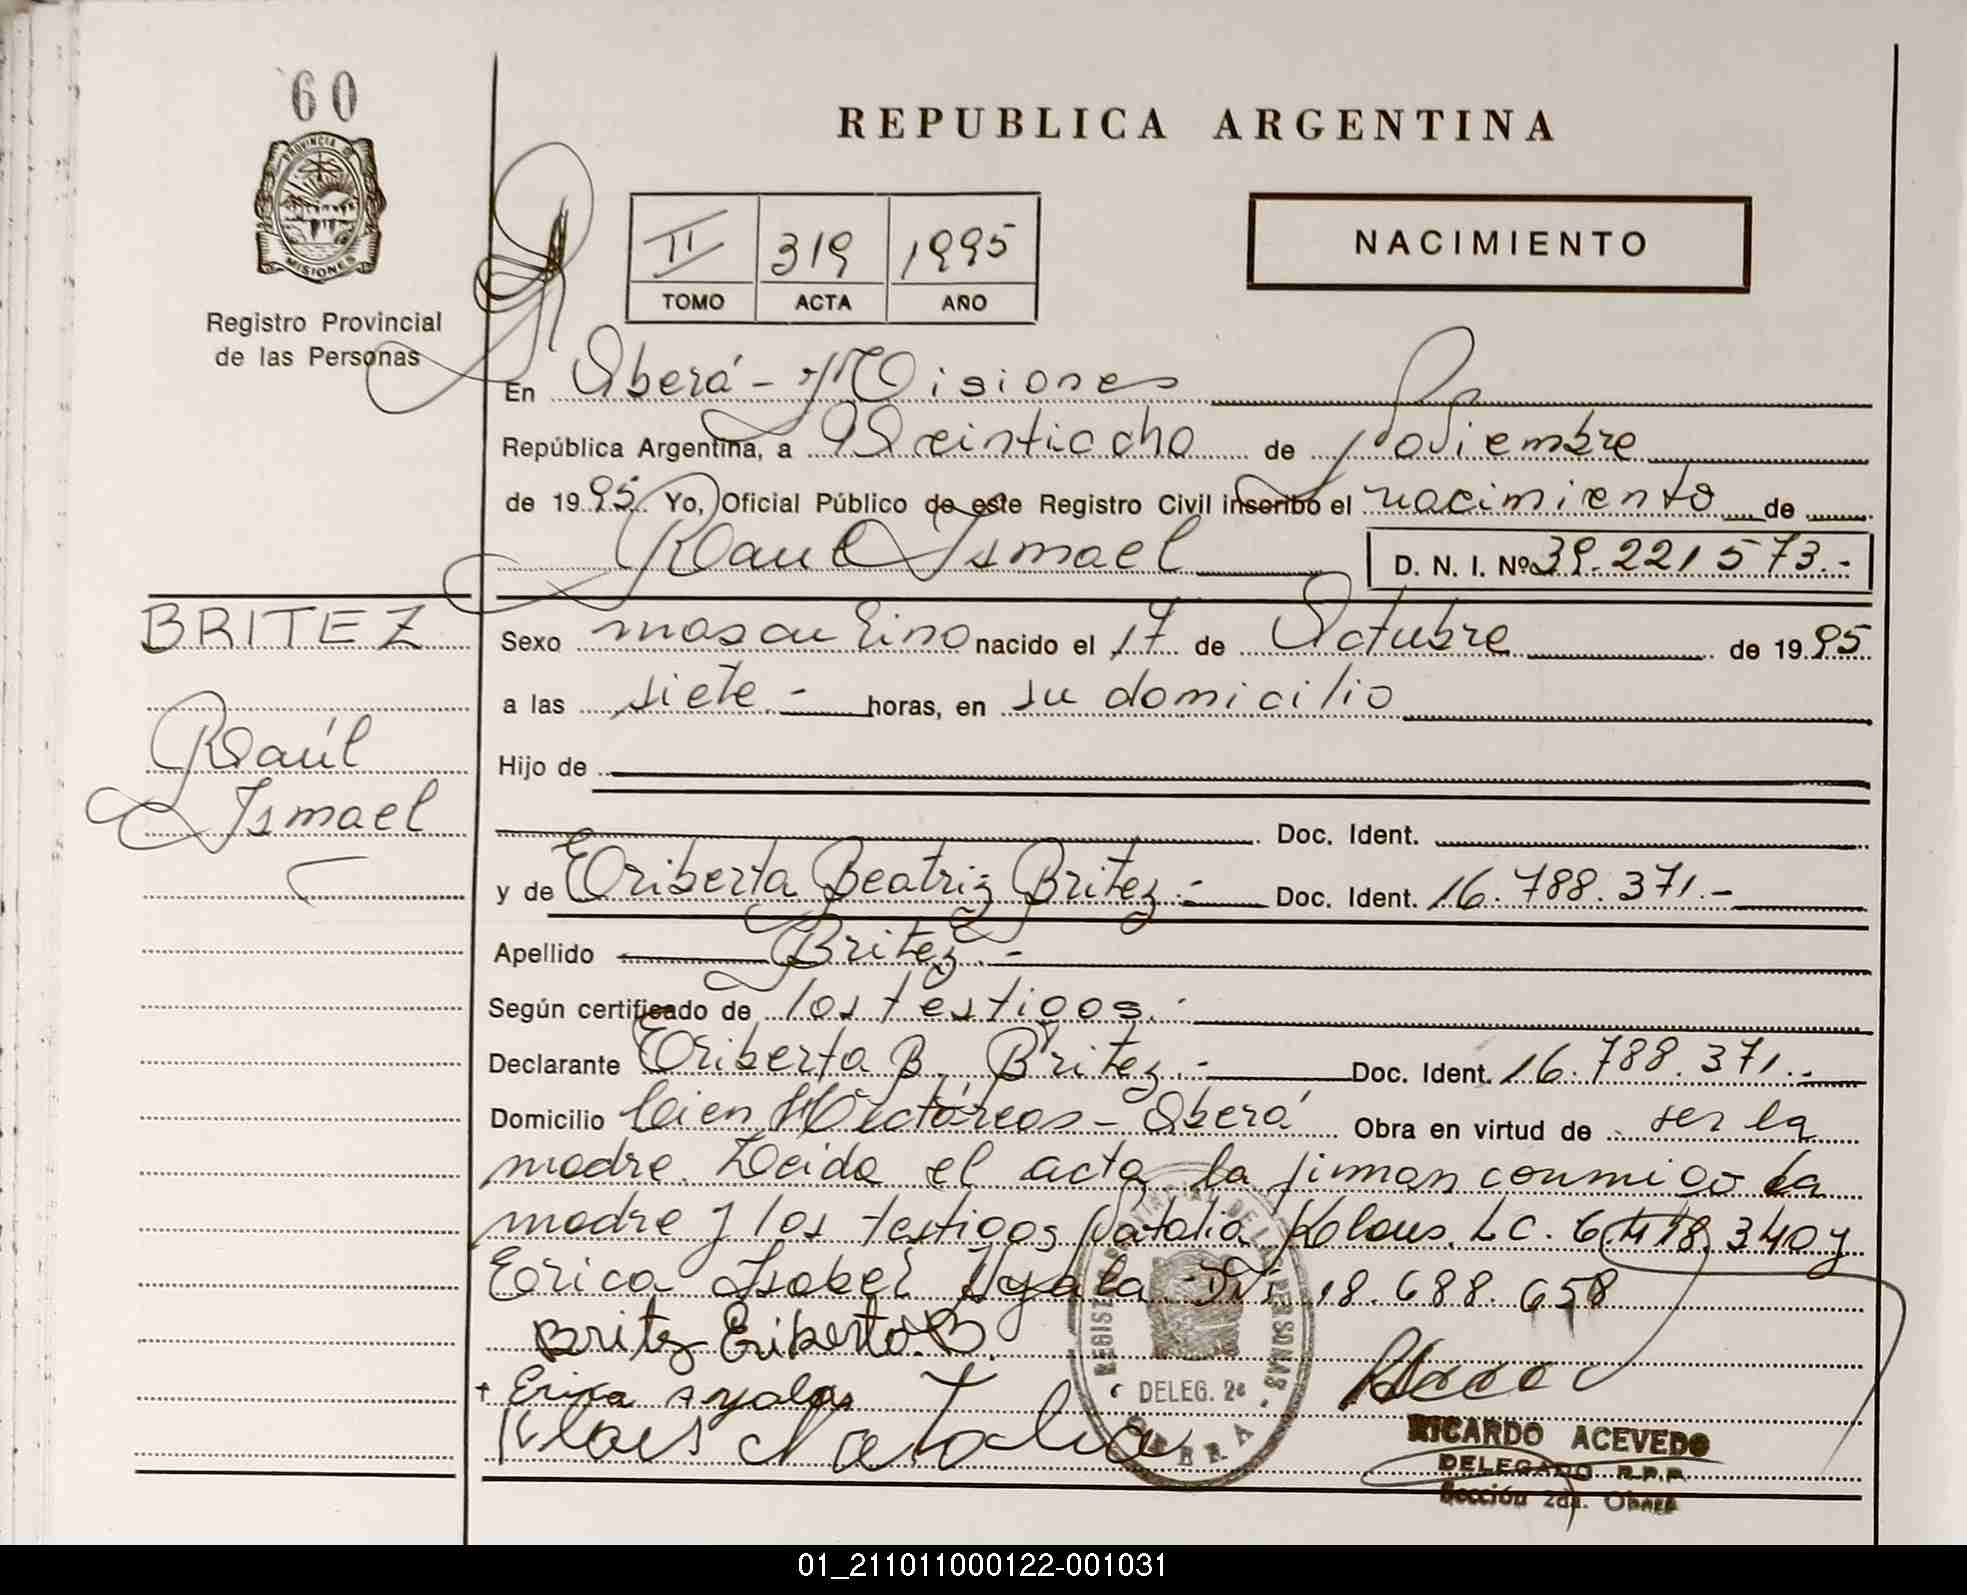 60
REPUBLICA ARGENTINA
PROVINCIA DE
MISIONES
Registro Provincial
de las Personas
II 319 1995
TOMO ACTA AÑO
NACIMIENTO
En Oberá - Misiones
República Argentina, a Veintiocho de Noviembre
de 1995 Yo, Oficial Público de este Registro Civil inscribo el nacimiento de
Raul Ismael D. N. I. Nº 39.221573.-
BRITEZ
Raúl
Ismael
Sexo masculino nacido el 17 de Octubre de 1995
a las siete.- horas, en su domicilio
Hijo de
Doc. Ident.
y de Eriberta Beatriz Britez.- Doc. Ident. 16.788.371.-
Apellido Britez.-
Según certificado de los testigos.-
Declarante Eriberta B. Britez.- Doc. Ident. 16.788.371.-
Domicilio Cien Hectáreas - Oberá Obra en virtud de ser la
madre. Leida el acta la firman conmigo la
madre y los testigos Natalia Klaus. LC. 6.418.340 y
Erica Isabel Ayala DNI 18.688.658
Britz Eriberto.B.
+ Erica Ayala
Klaus Natalia
REGISTRO PROVINCIAL DE LAS PERSONAS
DELEG. 2ª
OBERA
RICARDO ACEVEDO
DELEGADO R.P.P.
Sección 2da. Oberá
01_211011000122-001031